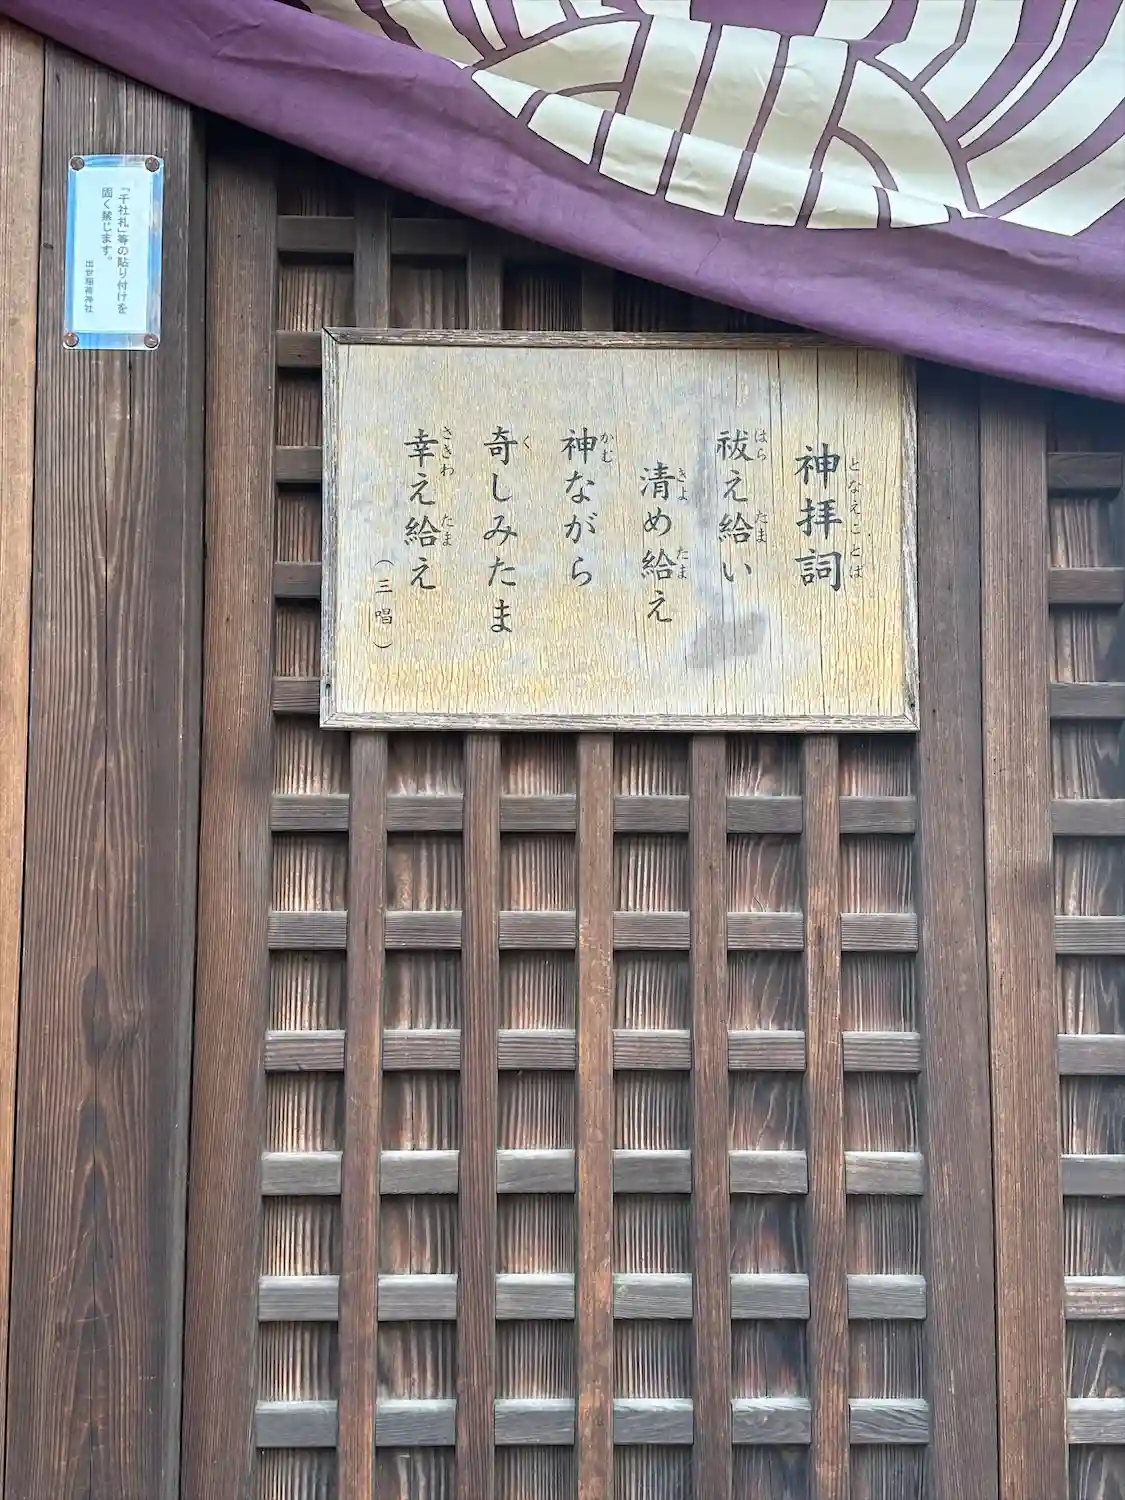 神拝詞
となえことば
祓え給い
はら たま
清め給え
きよ たま
神ながら
かむ
奇しみたま
く
幸え給え
さきわ たま
(三唱)
「千社札」等の貼り付けを
固く禁じます。
出世稲荷神社